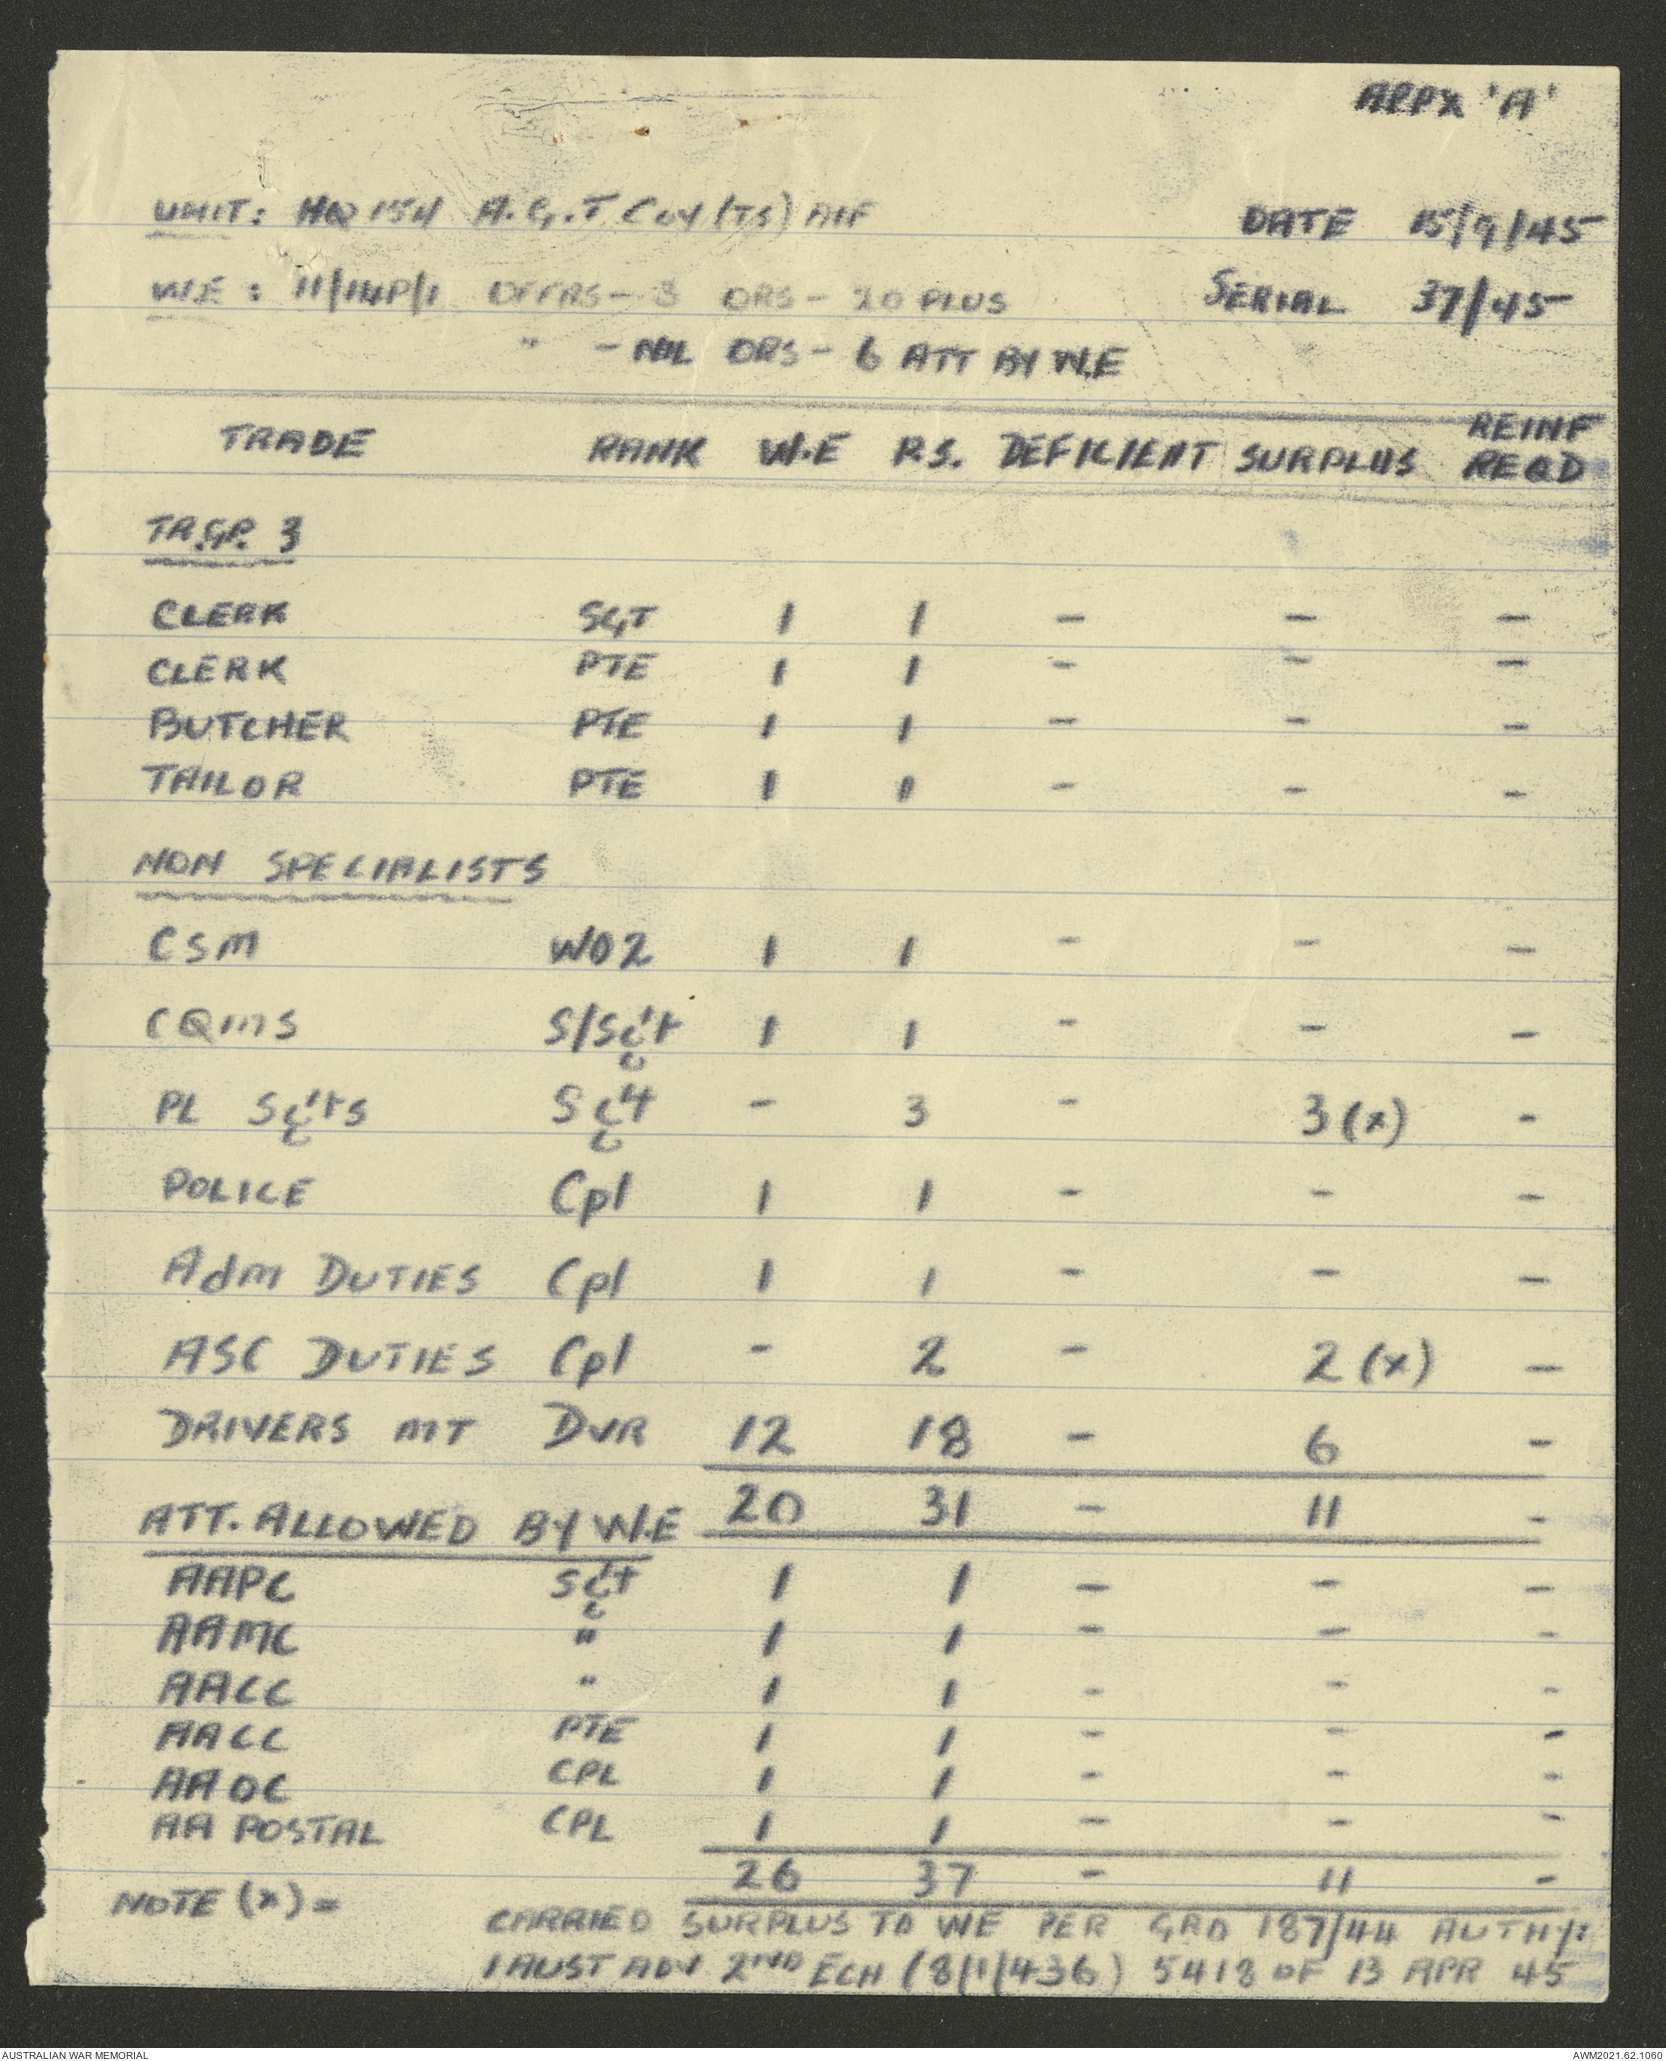 APPX 'A'
UNIT: HQ 154 A.G.T Coy (TS) AIF DATE 15/9/45
W.E : 11/14P/1 OFFRS - 3 ORS - 20 PLUS SERIAL 37/45
" - NIL ORS - 6 ATT BY W.E
TRADE RANK W.E P.S. DEFICIENT SURPLUS REINF REQD
TR.GP. 3
CLERK SGT 1 1 - - -
CLERK PTE 1 1 - - -
BUTCHER PTE 1 1 - - -
TAILOR PTE 1 1 - - -
NON SPECIALISTS
CSM WO2 1 1 - - -
CQMS S/Sgt 1 1 - - -
PL Sgts Sgt - 3 - 3 (x) -
POLICE Cpl 1 1 - - -
Adm DUTIES Cpl 1 1 - - -
ASC DUTIES Cpl - 2 - 2 (x) -
DRIVERS MT DVR 12 18 - 6 -
20 31 - 11 -
ATT. ALLOWED BY W.E
AAPC Sgt 1 1 - - -
AAMC " 1 1 - - -
AACC " 1 1 - - -
AACC PTE 1 1 - - -
AAOC CPL 1 1 - - -
AA POSTAL CPL 1 1 - - -
26 37 - 11 -
NOTE (x) =
CARRIED SURPLUS TO WE PER GRO 187/44 AUTHY:
1 AUST ADV 2ND ECH (8/1/436) 5418 OF 13 APR 45
AUSTRALIAN WAR MEMORIAL AWM2021.62.1060